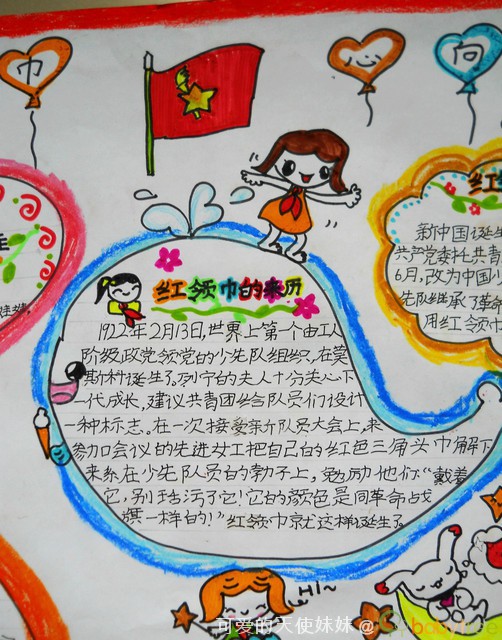 巾
心
向
红领巾的来历
1922年2月13日,世界上第一个由工人
阶级政党领党的少先队组织,在莫
斯科诞生了。列宁的夫人十分关心下
一代成长,建议共青团给队员们设计
一种标志。在一次接受新队员大会上,来
参加会议的先进女工把自己的红色三角头巾解下
来系在少先队员的勃子上,勉励他们:"戴着
它,别玷污了它!它的颜色是同革命战
旗一样的!"红领巾就这样诞生了。
红领
新中国诞生
共产党委托共青
6月,改为中国少
先队继承了革命
用红领巾
Hi~
可爱的天使妹妹@